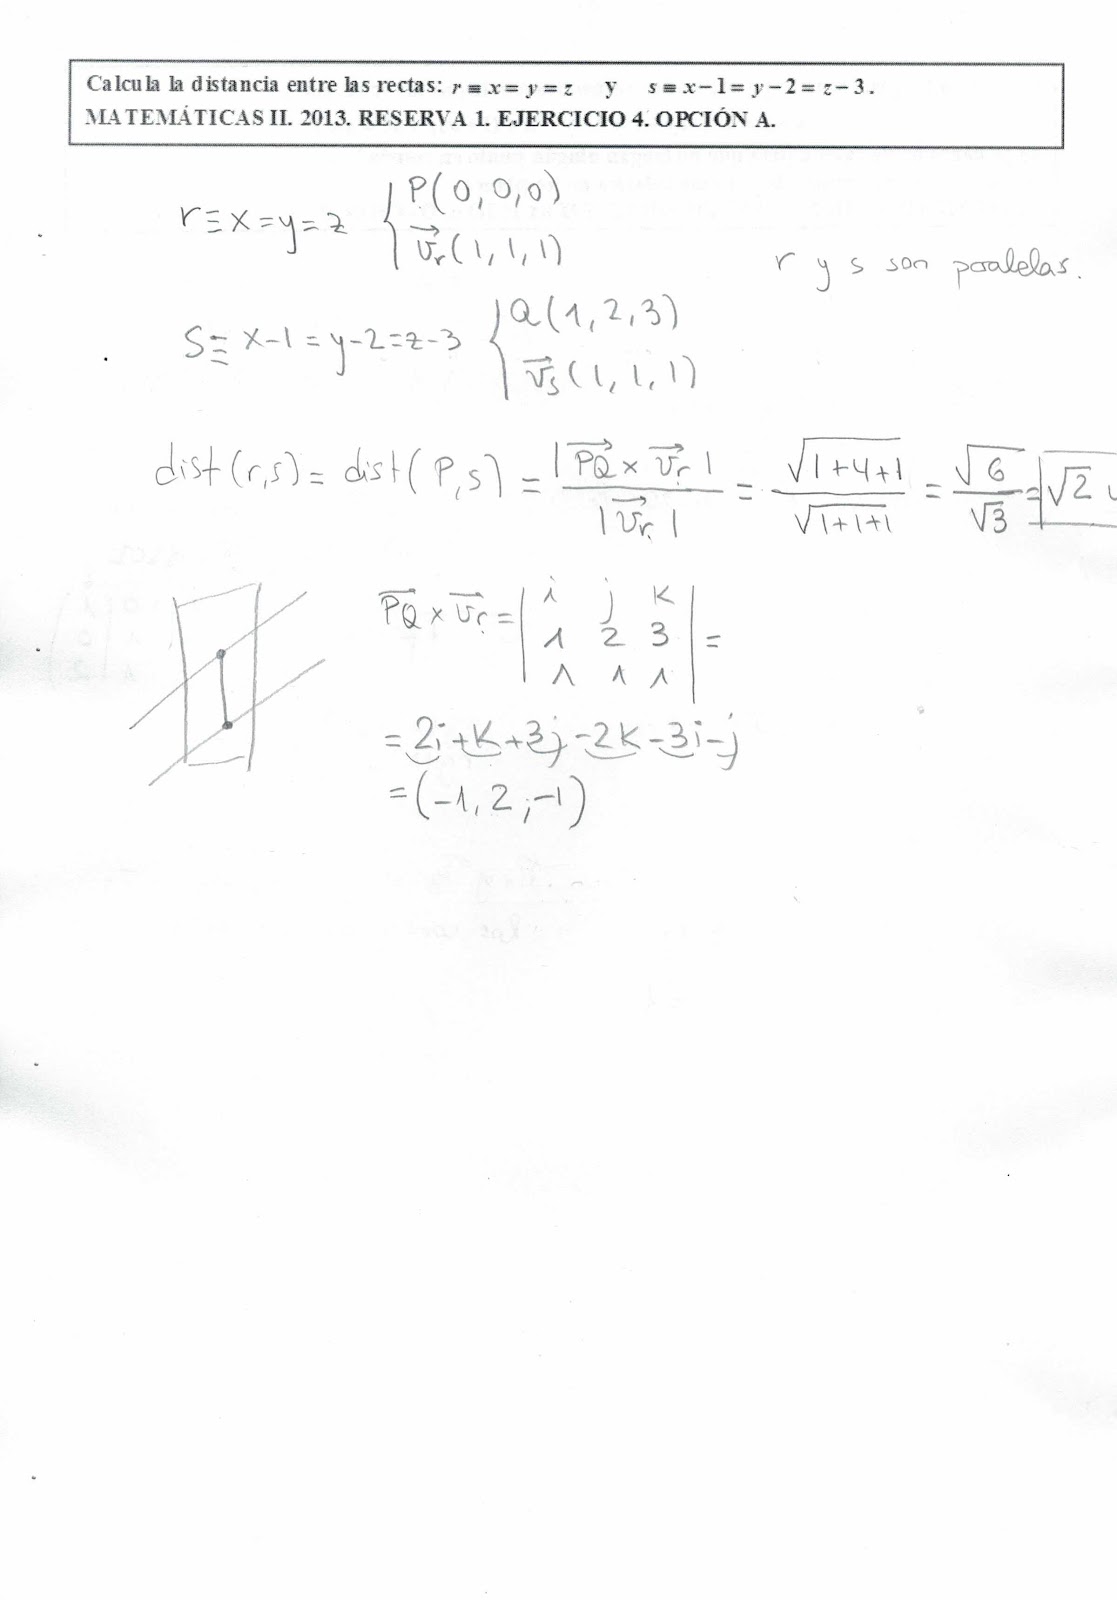 Calcula la distancia entre las rectas: r ≡ x = y = z y s ≡ x − 1 = y − 2 = z − 3.
MATEMÁTICAS II. 2013. RESERVA 1. EJERCICIO 4. OPCIÓN A.
r ≡ x = y = z { P(0,0,0)
v⃗r(1,1,1)
r y s son paralelas.
S ≡ x-1 = y-2 = z-3 { Q(1,2,3)
v⃗s(1,1,1)
dist(r,s) = dist(P,s) = |P⃗Q × v⃗r| / |v⃗r| = √1+4+1 / √1+1+1 = √6 / √3 = √2 u
P⃗Q × v⃗r = | i j k
1 2 3
1 1 1 | =
= 2i + k + 3j - 2k - 3i - j
= (-1, 2, -1)